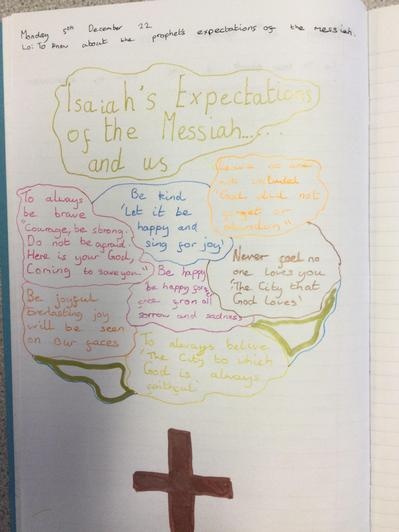 Monday 5th December 22
Lo: To know about the prophets expectations of the Messiah.
Isaiah's Expectations
of the Messiah.....
and us
To always
be brave
"Courage, be strong.
Do not be afraid
Here is your God,
Coming to save you"
Be kind
'Let it be
happy and
sing for joy'
no one
not included
"God did not
forget or
abandon"
Be happy
'be happy
free from all
sorrow and sadness
Never feel no
one loves you
'The City that
God loves'
Be joyful
Everlasting joy
will be seen
on our faces
To always belive
'The City to which
God is always
faithful'